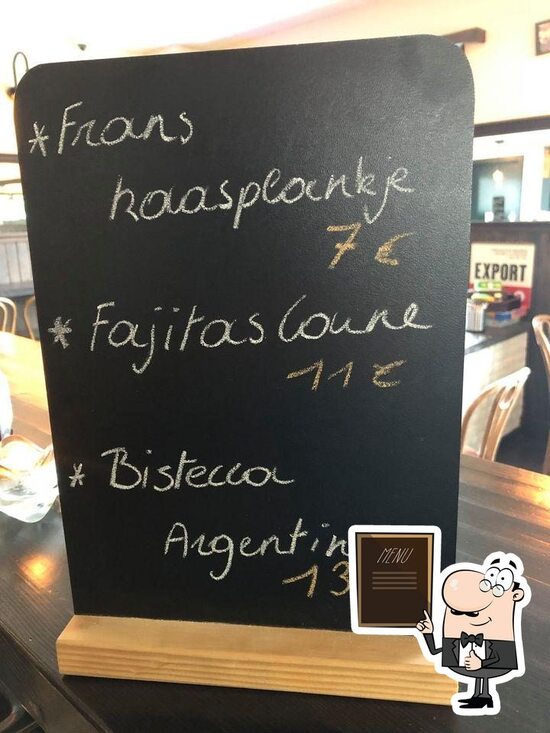 *Frans
kaasplankje
7 €
* Fajitas Coune
11 €
* Bistecca
Argentin
13
MENU
EXPORT